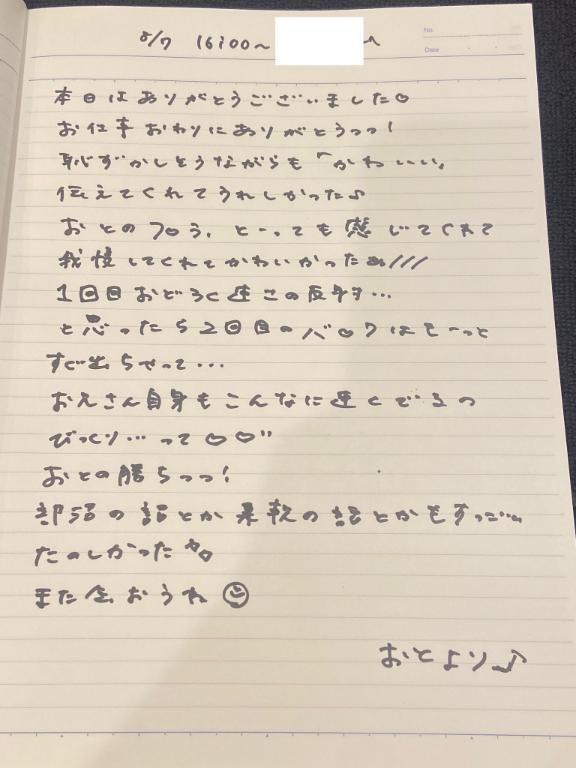 8/7 16:00〜 へ
No.
Date
本日はありがとうございました♡
お仕事おわりにありがとうっっ!
恥ずかしそうながらも「かわいい」
伝えてくれてうれしかった♪
おとのフロう、とーっても感じてくれて
我慢してくれてかわいかったぁ///
1回目おどろく速さの反射…
と思ったら2回目のバックはもーっと
すぐ出ちゃって…
お兄さん自身もこんなに速くでるの
びっくり…って♡♡"
おとの勝ちっっ!
部活の話とか柔軟の話とかもすっごく
たのしかった
また会おうね☺
おとより♪